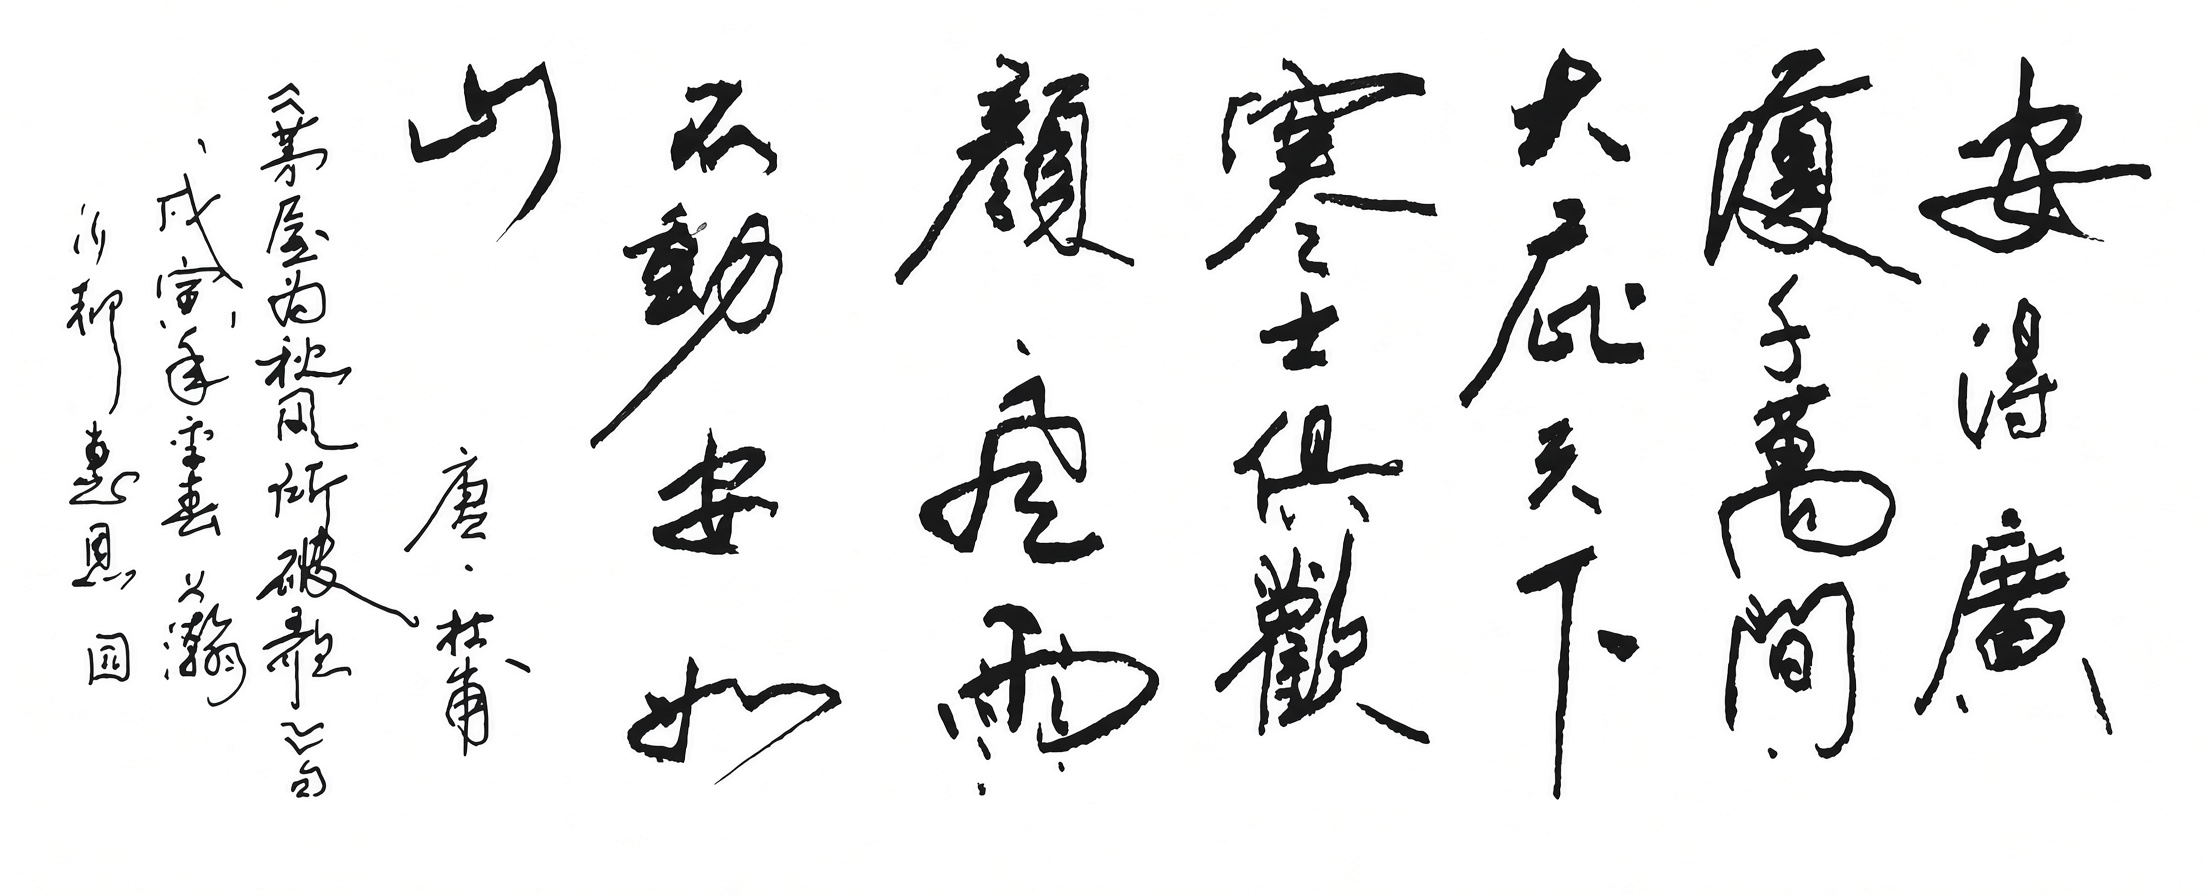 安得廣
廈千萬間
大庇天下
寒士俱歡
顏風雨
不動安如
山 唐·杜甫
《茅屋为秋风所破歌》句
戊寅年雪春 父瀚
惠恩